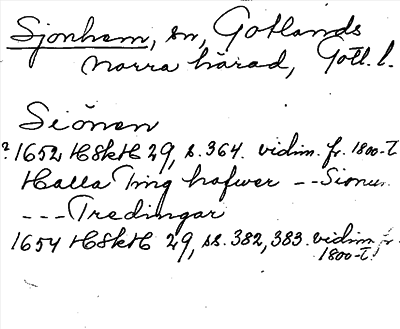 Sjonhem, sn, Gotlands
norra härad, Gotl. l.
Siönen
? 1652 HSkH 29, s. 364. vidim. fr. 1800-t
Halla Ting hafwer -- Sionen
--- Tredingar
1654 HSkH 29, ss. 382, 383. vidim. fr.
1800-t.